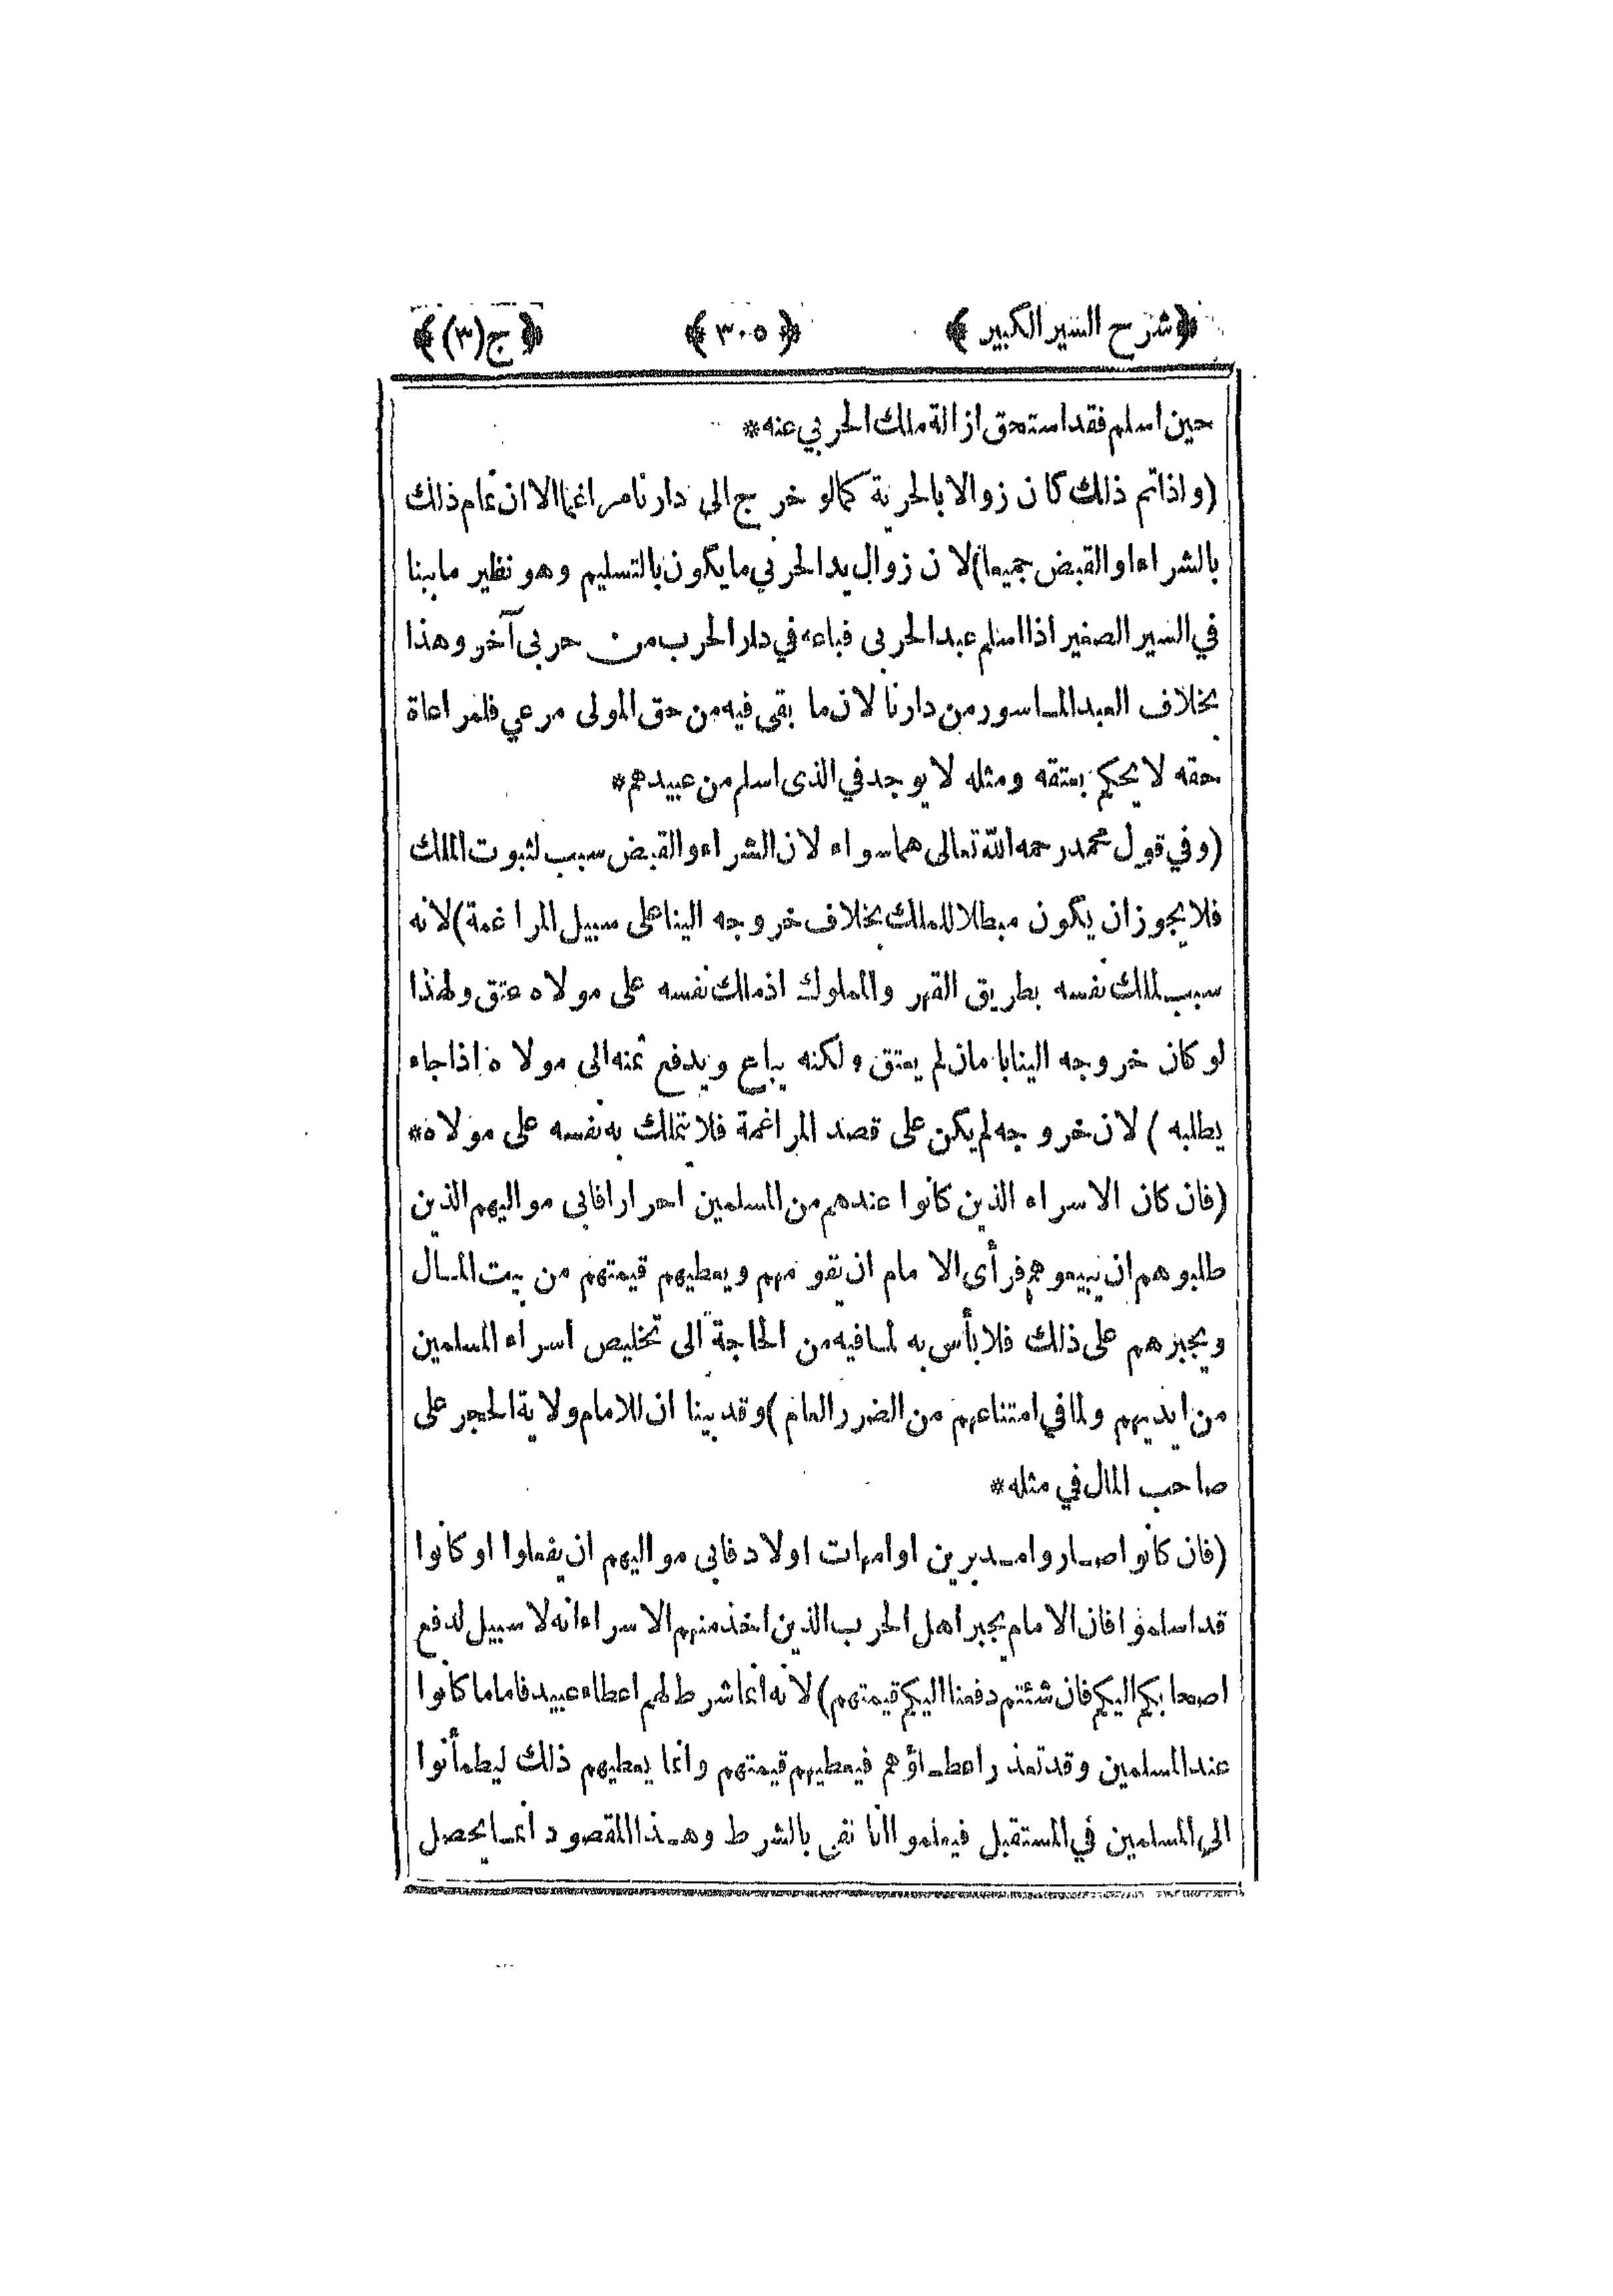 ﴿شرح السير الكبير﴾ ﴿٣٠٥﴾ ﴿ج(٣)﴾
حين اسلم فقد استحق ازالة ملك الحربي عنه*
(واذا تم ذلك كان زوالا بالحرية كما لو خرج الى دارنا مراغما الا ان تمام ذلك
بالشراء او القبض جميعا) لان زوال يد الحربي ما يكون بالتسليم وهو نظير ما بينا
في السير الصغير اذا اسلم عبد الحربى فباعه في دار الحرب من حربى آخر وهذا
بخلاف العبد المأسور من دارنا لان ما بقى فيه من حق المولى مرعي فلمراعاة
حقه لا يحكم بعتقه ومثله لا يوجد في الذى اسلم من عبيدهم*
(وفي قول محمد رحمه الله تعالى هما سواء لان الشراء والقبض سبب لثبوت الملك
فلا يجوز ان يكون مبطلا للملك بخلاف خروجه الينا على سبيل المراغمة) لانه
سبب لملك نفسه بطريق القهر والمملوك اذ ملك نفسه على مولاه عتق ولهذا
لو كان خروجه الينا بامان لم يعتق ولكنه يباع ويدفع ثمنه الى مولاه اذا جاء
يطلبه) لان خروجه لم يكن على قصد المراغمة فلا تملك به نفسه على مولاه*
(فان كان الاسراء الذين كانوا عندهم من المسلمين احرارا فابى مواليهم الذين
طلبوهم ان يبيعوهم فرأى الامام ان يقومهم ويعطيهم قيمتهم من بيت المال
ويجبرهم على ذلك فلا بأس به لما فيه من الحاجة الى تخليص اسراء المسلمين
من ايديهم ولما في امتناعهم من الضرر العام) وقد بينا ان للامام ولاية الحجر على
صاحب المال في مثله*
(فان كانوا صاروا مدبرين او امهات اولاد فابى مواليهم ان يفعلوا او كانوا
قد اسلموا فان الامام يجبر اهل الحرب الذين اخذ منهم الاسراء انه لا سبيل لدفع
اصحابكم اليكم فان شئتم دفعنا اليكم قيمتهم) لانه انما شرط لهم اعطاء عبيد فاما ما كانوا
عند المسلمين وقد تعذر اعطاؤهم فيعطيهم قيمتهم وانما يعطيهم ذلك ليطمأنوا
الى المسلمين في المستقبل فيعلموا انا نفى بالشرط وهذا المقصود انما يحصل